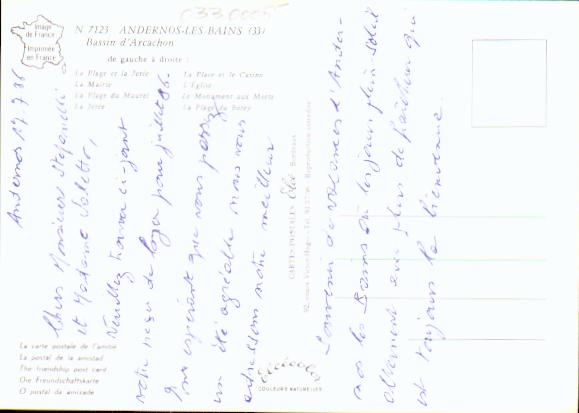 0330005
Image
de France
Imprimée
en France
N 7123 ANDERNOS-LES-BAINS (33)
Bassin d'Arcachon
de gauche à droite :
La Plage et la Jetée
La Mairie
La Plage du Mauret
La Jetée
La Place et le Casino
L'Eglise
Le Monument aux Morts
La Plage du Betey
Andernos 17.7.86
Chers Monsieur Stefanelli
et Madame Valette,
Veuillez trouver ci-joint
notre reçu de loyer pour juillet 86.
En espérant que vous passez
un été agréable nous vous
adressons notre meilleur
souvenir de vacances d'Ander-
nos les Bains où les jours plein soleil
alternent avec plus de fraîcheur qui
est toujours la bienvenue.
CARTES POSTALES Elcé Bordeaux
Reproduction interdite
La carte postale de l'amitié
La postal de la amistad
The friendship post card
Die Freundschaftskarte
O postal da amizade
COULEURS NATURELLES